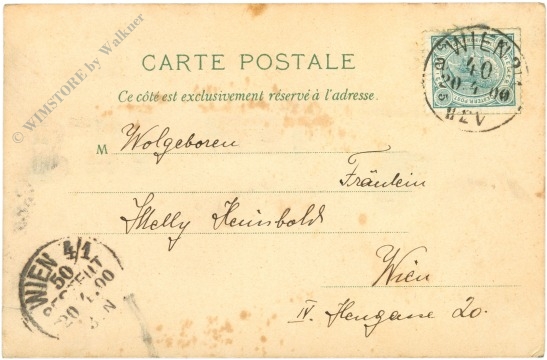 CARTE POSTALE
Ce côté est exclusivement réservé à l'adresse.
M Wolgeboren
Fräulein
Wien
IV. Heugasse 20.
WIEN
40
20 4 00
WIEN 4/1
50
BESTELLT
20. 4. 00
© WIMSTORE by Walkner